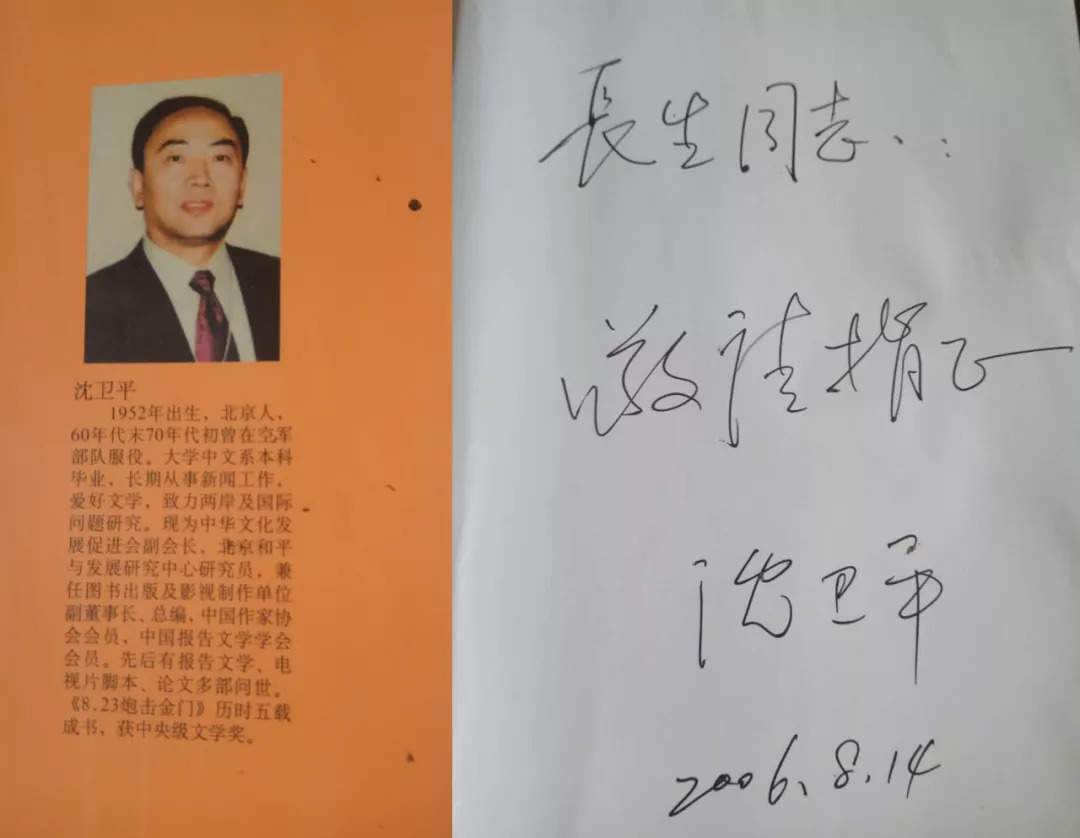 沈卫平
1952年出生，北京人，
60年代末70年代初曾在空军
部队服役。大学中文系本科
毕业，长期从事新闻工作。
爱好文学，致力两岸及国际
问题研究。现为中华文化发
展促进会副会长，北京和平
与发展研究中心研究员，兼
任图书出版及影视制作单位
副董事长、总编，中国作家协
会会员，中国报告文学学会
会员。先后有报告文学、电
视片脚本、论文多部问世。
《8.23炮击金门》历时五载
成书，获中央级文学奖。
長生同志：
敬请指正
沈卫平
2006.8.14